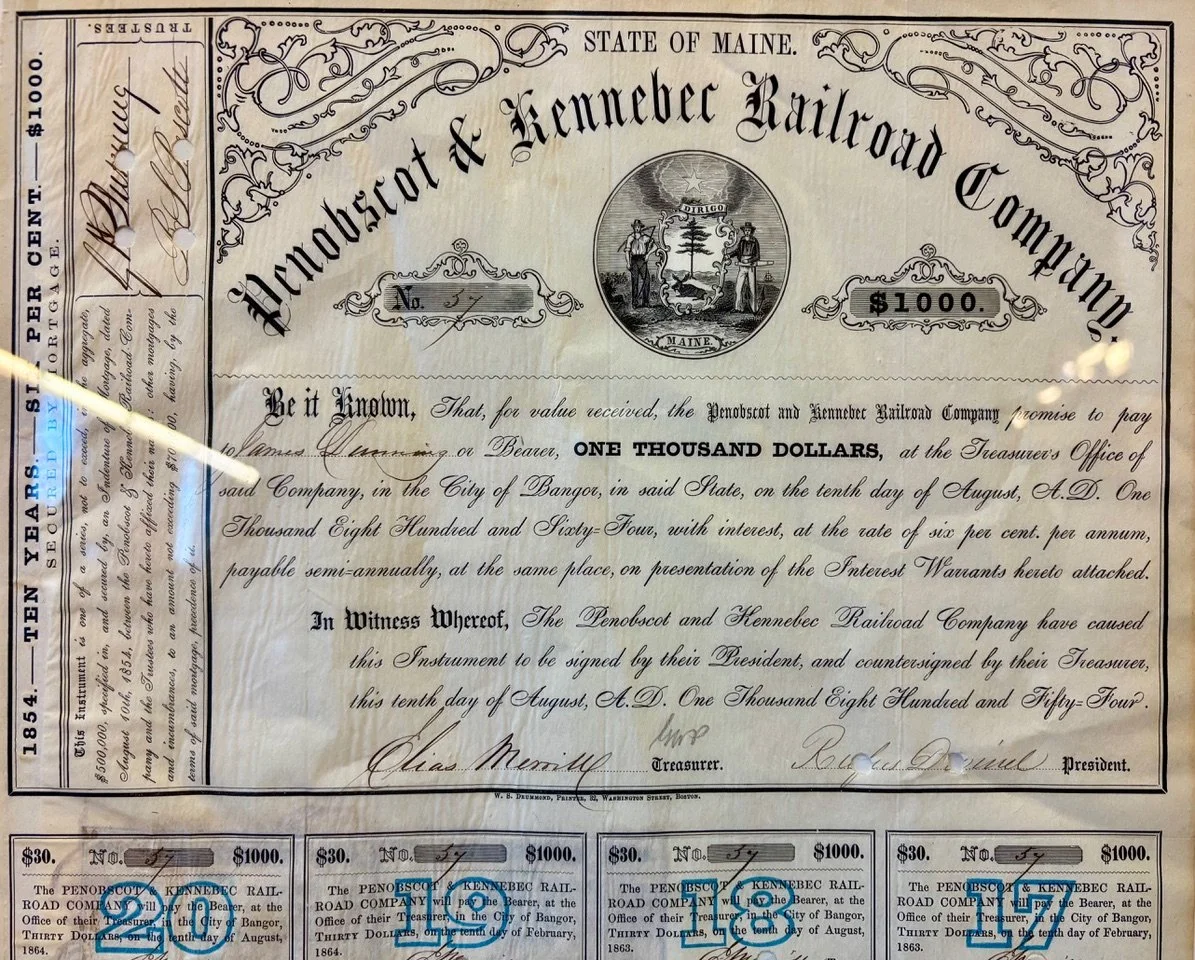 STATE OF MAINE.
Penobscot & Kennebec Railroad Company.
DIRIGO
No. 57
$1000.
MAINE.
Be it Known, That, for value received, the Penobscot and Kennebec Railroad Company promise to pay
to James Dunning or Bearer, ONE THOUSAND DOLLARS, at the Treasurer's Office of
said Company, in the City of Bangor, in said State, on the tenth day of August, A.D. One
Thousand Eight Hundred and Sixty-Four, with interest, at the rate of six per cent. per annum,
payable semi-annually, at the same place, on presentation of the Interest Warrants hereto attached.
In Witness Whereof, The Penobscot and Kennebec Railroad Company have caused
this Instrument to be signed by their President, and countersigned by their Treasurer,
this tenth day of August, A.D. One Thousand Eight Hundred and Fifty-Four.
Elias Merrill Treasurer. Rufus President.
W. S. DRUMMOND, PRINTER, 32, WASHINGTON STREET, BOSTON.
1854.—TEN YEARS.—SIX PER CENT.—$1000.
SECURED BY MORTGAGE.
This Instrument is one of a series, not to exceed, in the aggregate,
$500,000, specified in, and secured by, an Indenture of Mortgage, dated
August 10th, 1854, between the Penobscot & Kennebec Railroad Com-
pany and the Trustees who have hereto affixed their names: other mortgages
and incumbrances, to an amount not exceeding having, by the
terms of said mortgage, precedence of it.
TRUSTEES.
$30. No. 57 $1000.
The PENOBSCOT & KENNEBEC RAIL-
ROAD COMPANY will pay the Bearer, at the
Office of their Treasurer, in the City of Bangor,
THIRTY DOLLARS, on the tenth day of August,
1864.
20
$30. No. 57 $1000.
The PENOBSCOT & KENNEBEC RAIL-
ROAD COMPANY will pay the Bearer, at the
Office of their Treasurer, in the City of Bangor,
THIRTY DOLLARS, on the tenth day of February,
1864.
19
$30. No. 57 $1000.
The PENOBSCOT & KENNEBEC RAIL-
ROAD COMPANY will pay the Bearer, at the
Office of their Treasurer, in the City of Bangor,
THIRTY DOLLARS, on the tenth day of August,
1863.
18
$30. No. 57 $1000.
The PENOBSCOT & KENNEBEC RAIL-
ROAD COMPANY will pay the Bearer, at the
Office of their Treasurer, in the City of Bangor,
THIRTY DOLLARS, on the tenth day of February,
1863.
17